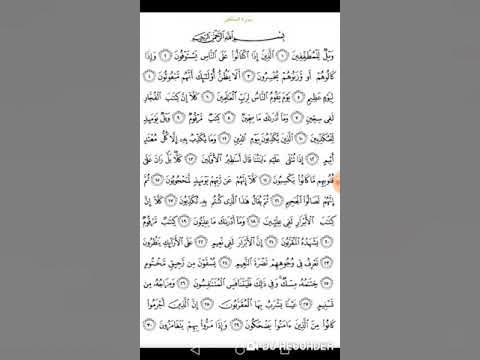 سورة المطففين
بِسْمِ اللَّهِ الرَّحْمَٰنِ الرَّحِيمِ
وَيْلٌ لِّلْمُطَفِّفِينَ ١ ٱلَّذِينَ إِذَا ٱكْتَالُوا۟ عَلَى ٱلنَّاسِ يَسْتَوْفُونَ ٢ وَإِذَا
كَالُوهُمْ أَو وَّزَنُوهُمْ يُخْسِرُونَ ٣ أَلَا يَظُنُّ أُو۟لَٰٓئِكَ أَنَّهُم مَّبْعُوثُونَ ٤
لِيَوْمٍ عَظِيمٍ ٥ يَوْمَ يَقُومُ ٱلنَّاسُ لِرَبِّ ٱلْعَٰلَمِينَ ٦ كَلَّآ إِنَّ كِتَٰبَ ٱلْفُجَّارِ
لَفِى سِجِّينٍ ٧ وَمَآ أَدْرَىٰكَ مَا سِجِّينٌ ٨ كِتَٰبٌ مَّرْقُومٌ ٩ وَيْلٌ يَوْمَئِذٍ
لِّلْمُكَذِّبِينَ ١٠ ٱلَّذِينَ يُكَذِّبُونَ بِيَوْمِ ٱلدِّينِ ١١ وَمَا يُكَذِّبُ بِهِۦٓ إِلَّا كُلُّ مُعْتَدٍ
أَثِيمٍ ١٢ إِذَا تُتْلَىٰ عَلَيْهِ ءَايَٰتُنَا قَالَ أَسَٰطِيرُ ٱلْأَوَّلِينَ ١٣ كَلَّا بَلْ رَانَ عَلَىٰ
قُلُوبِهِم مَّا كَانُوا۟ يَكْسِبُونَ ١٤ كَلَّآ إِنَّهُمْ عَن رَّبِّهِمْ يَوْمَئِذٍ لَّمَحْجُوبُونَ ١٥ ثُمَّ
إِنَّهُمْ لَصَالُوا۟ ٱلْجَحِيمِ ١٦ ثُمَّ يُقَالُ هَٰذَا ٱلَّذِى كُنتُم بِهِۦ تُكَذِّبُونَ ١٧ كَلَّآ إِنَّ
كِتَٰبَ ٱلْأَبْرَارِ لَفِى عِلِّيِّينَ ١٨ وَمَآ أَدْرَىٰكَ مَا عِلِّيُّونَ ١٩ كِتَٰبٌ مَّرْقُومٌ
٢٠ يَشْهَدُهُ ٱلْمُقَرَّبُونَ ٢١ إِنَّ ٱلْأَبْرَارَ لَفِى نَعِيمٍ ٢٢ عَلَى ٱلْأَرَآئِكِ يَنظُرُونَ
٢٣ تَعْرِفُ فِى وُجُوهِهِمْ نَضْرَةَ ٱلنَّعِيمِ ٢٤ يُسْقَوْنَ مِن رَّحِيقٍ مَّخْتُومٍ
٢٥ خِتَٰمُهُۥ مِسْكٌ وَفِى ذَٰلِكَ فَلْيَتَنَافَسِ ٱلْمُتَنَٰفِسُونَ ٢٦ وَمِزَاجُهُۥ مِن
تَسْنِيمٍ ٢٧ عَيْنًا يَشْرَبُ بِهَا ٱلْمُقَرَّبُونَ ٢٨ إِنَّ ٱلَّذِينَ أَجْرَمُوا۟
كَانُوا۟ مِنَ ٱلَّذِينَ ءَامَنُوا۟ يَضْحَكُونَ ٢٩ وَإِذَا مَرُّوا۟ بِهِمْ يَتَغَامَزُونَ ٣٠
DU RECORDER